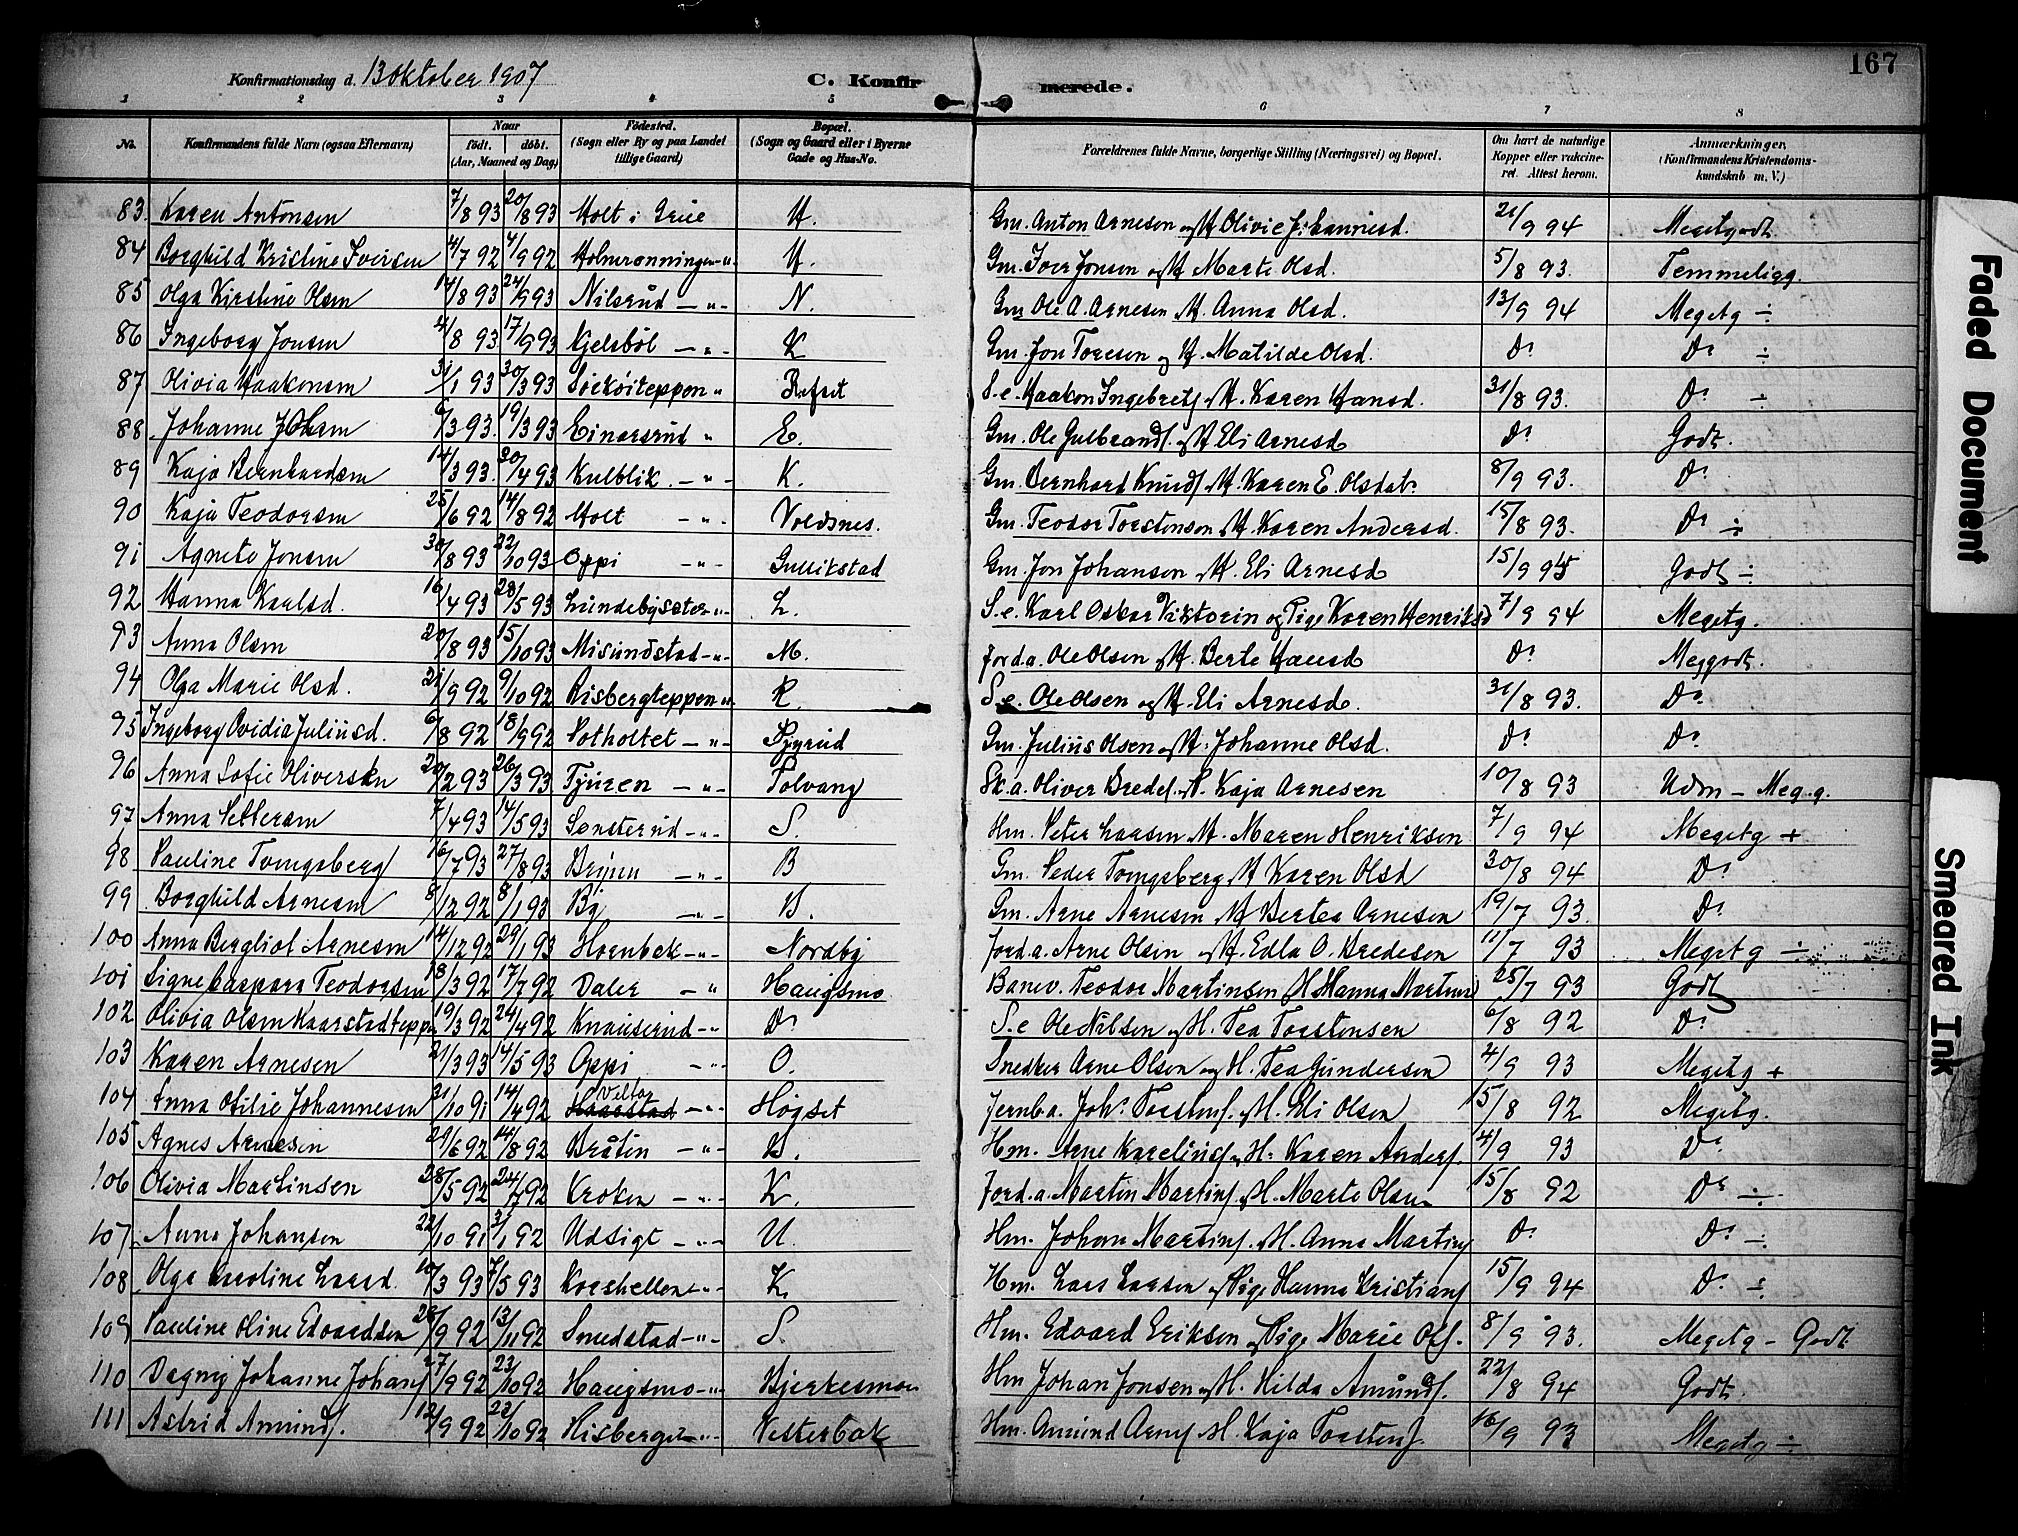 167
Konfirmationsdag d. 13 Oktober 1907 C. Konfirmerede.
1 2 3 4 5 6 7 8
No. Konfirmandens fulde Navn (ogsaa Efternavn) Naar født. døbt. (Aar, Maaned og Dag) Fødested. (Sogn eller By og paa Landet tillige Gaard) Bopæl. (Sogn og Gaard eller i Byerne Gade og Hus-No. Forældrenes fulde Navne, borgerlige Stilling (Næringsvei) og Bopæl. Om havt de naturlige Kopper eller vakcineret. Attest herom. Anmærkninger. (Konfirmandens Kristendomskundskab m. V.)
83 Karen Antonsen 7/8 93 20/8 93 Holt i Grue H. Gm. Anton Arnesen og H Olivie Johannesd. 21/9 94 Megetgodt
84 Borghild Kristine Iversen 4/7 92 4/9 92 Holmrønningen -"- H. Gm. Iver Jonsen og H Marte Olsd. 5/8 93. Temmeligg.
85 Olga Kirstine Olsen 14/8 93 24/9 93 Nilsrud -"- N. Gm Ole A. Arnesen H. Anna Olsd. 13/9 94 Megetg ÷
86 Ingeborg Jonsen 4/8 93 17/9 93 Kjelsbøl -"- K Gm. Jon Toresen og H. Matilde Olsd. Do Do ÷
87 Olivia Haakonsen 31/1 93 30/3 93 " Refset S.e. Haakon Ingebrets. H. Karen Hansd. 31/8 93. Do ÷
88 Johanne Olsen 6/3 93. 19/3 93 Einarsrud " E. Gm. Ole Gulbrands. og H Eli Arnesd Do Godt.
89 Kaja Bernhardsen 14/3 93. 30/4 93 Kulblik. -"- K. Gm. Bernhard Knuds. H. Karen E. Olsdat. 8/9 93. Do
90 Kaja Teodorsen 25/6 92 14/8 92 Holt -"- Voldsnes. Gm. Teodor Torstenson H. Karen Andersd. 15/8 93. Do ÷
91 Agnete Jonsen 30/8 93 22/10 93 Oppi -"- Gullikstad Gm. Jon Johansen og H. Eli Arnesd 15/9 95 Godt ÷
92 Hanna Karlsd. 16/4 93 28/5 93 Lundebysæter -"- L. S.e. Karl Oskar Viktorin og Pige Karen Henriksd 7/9 94 Megetg.
93 Anna Olsen 20/8 93 15/10 93 Misundstad -"- M. Jorda. Ole Olsen og H. Berte Hansd Do Meggodt.
94 Olga Marie Olsd. 21/9 92 9/10 92 Risbergteppen " R. S.e. Ole Olsen og H. Eli Arnesd. 31/8 93. Do
95 Ingeborg Ovidia Juliusd. 6/8 92 18/9 92 Potholtet -"- Gm. Julius Olsen og H. Johanne Olsd. Do Do
96 Anna Sofie Oliversen 20/2 93 26/3 93 Tjuren -"- Solvang Sk.a. Oliver Bredes. H. Kaja Arnesen 10/8 93 Udm - Meg.g.
97 Anna Pettersen 7/4 93 14/5 93 Sønsterud -"- S. Hm. Peter Larsen H. Maren Henriksen 7/9 94 Megetg +
98 Pauline Tvengsberg 16/7 93 27/8 93 -"- B Gm. Peder Tvengsberg H Karen Olsd 30/8 94 Do
99 Borghild Arnesen 8/12 92 8/1 93 By -"- B. Gm. Arne Arnesen H Bertea Arnesen 19/7 93. Do
100 Anna Bergliot Arnesen 14/12 92 29/1 93 Hornbæk -"- Nordby Jord.a. Arne Olsen og H. Edla O. Bredesen 11/7 93 Megetg ÷
101 Signe Caspara Teodorsen 18/3 92 17/7 92 Daler -" Haugsmo Banev. Teodor Martinsen H Hanna Martins 25/7 93 Godt
102 Olivia Olsen Kaarstadteppn 19/3 92 24/4 92 Knauserud -"- Do S.e Ole Nilsen og H. Tea Torstensen 6/8 92 Do
103 Karen Arnesen 21/3 93 14/5 93 Oppi -"- O. Snedker Arne Olsen og H. Tea Gundersen 4/9 93 Megetg +
104 Anna Otilie Johannesen 31/10 91 14/4 92 Velta Kaarstad -"- Høgset Jernb.a. Johs. Torstens. H. Eli Olsen 15/8 92 Megetg.
105 Agnes Arnesen 24/6 92 14/8 92 Bråten -"- B. Hm. Arne Karelius. og H. Karen Anders. 4/9 93 Do
106 Olivia Martinsen 28/5 92 24/7 92 Kroken -"- K. Jord.a. Marten Martins. H. Marte Olsen 15/8 92 Do ÷
107 Anna Johansen 22/10 91 3/1 92 Udsigt -"- U. Hm. Johan Martins. H. Anna Martins Do Do ÷
108 Olga Karoline Larsd. 10/3 93 7/5 93 Korshellen -"- K Hm. Lars Larsen og Pige Hanna Kristians 15/9 94 Do ÷
109 Pauline Oline Edvardsen 28/9 92 13/11 92 Smedstad -"- S. Hm. Edvard Eriksen og Pige Marie Ols. 8/9 93. Megetg - Godt
110 Dagny Johanne Johans 27/9 92 23/10 92 Haugsmo -"- Bjerkesmo Hm Johan Jonsen og H. Hilda Amunds. 22/8 94 Godt.
111 Astrid Amunds. 12/9 92 23/10 92 Risberget -"- Vesterbak Hm. Amund Arnes H. Kaja Torstens 16/9 93 Megetg ÷
Faded Document
Smeared Ink